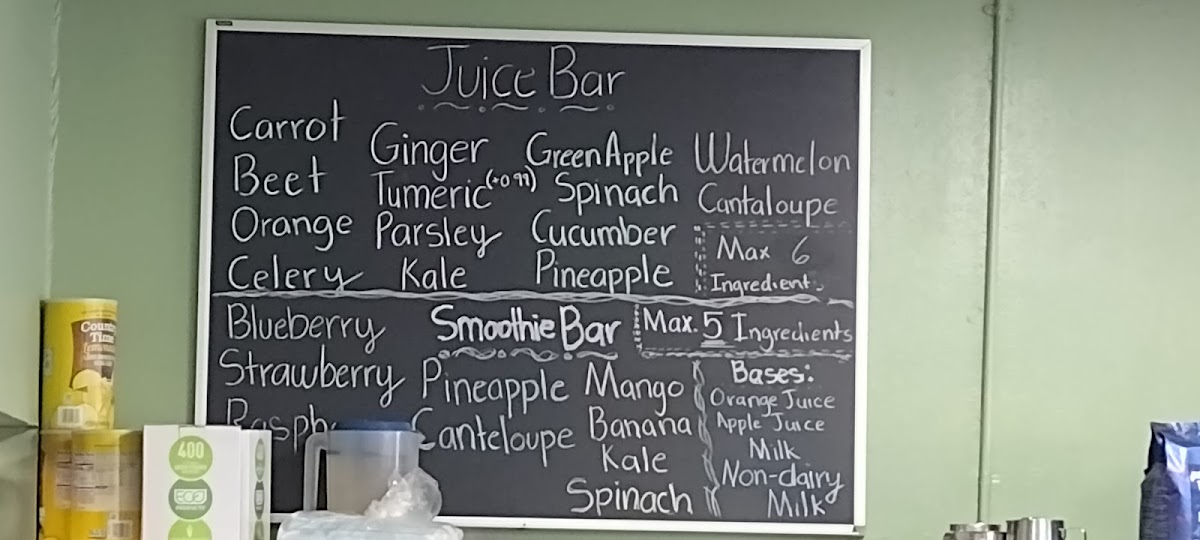 Juice Bar
Carrot
Beet
Orange
Celery
Ginger
Tumeric (+0.99)
Parsley
Kale
Green Apple
Spinach
Cucumber
Pineapple
Watermelon
Cantaloupe
Max 6
Ingredient
Smoothie Bar
Max. 5 Ingredients
Blueberry
Strawberry
Pineapple
Canteloupe
Mango
Banana
Kale
Spinach
Bases:
Orange Juice
Apple Juice
Milk
Non-dairy
Milk
Country
Time
400